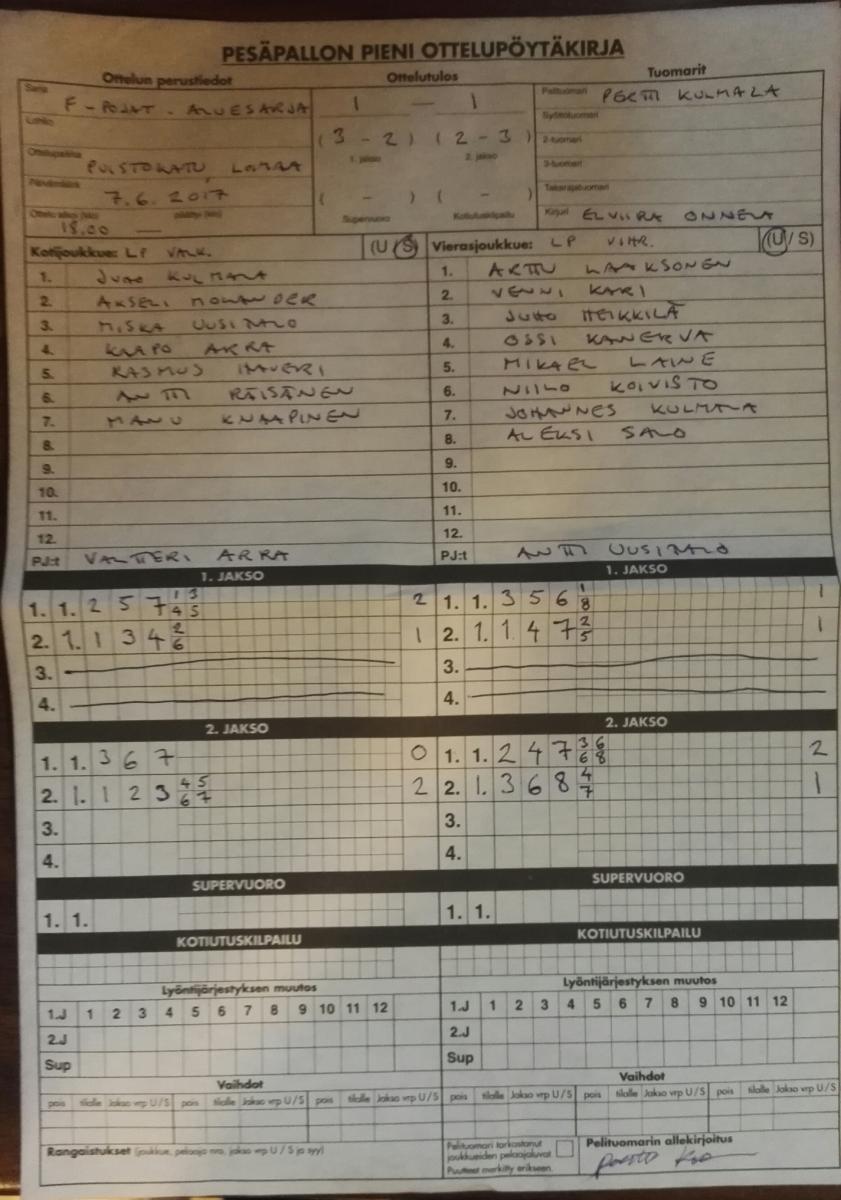 PESÄPALLON PIENI OTTELUPÖYTÄKIRJA
Ottelun perustiedot Ottelutulos Tuomarit
Sarja F-POJAT - ALUESARJA 1 — 1 Pelituomari PERTTI KULMALA
Lohko (3 - 2) (2 - 3) Syöttötuomari
1. jakso 2. jakso 2-tuomari
Ottelupaikka PUISTOKATU, LOIMAA 3-tuomari
Päivämäärä 7.6.2017 ( - ) ( - ) Takarajatuomari
Ottelu alkoi (klo) 18.00 päättyi (klo) — Supervuoro Kotiutuskilpailu Kirjuri ELVIIRA ONNELA
Kotijoukkue: LP VALK. (U / S) Vierasjoukkue: LP VIHR. (U / S)
1. JUHO KULMALA 1. ARTTU LAAKSONEN
2. AKSELI MOLANDER 2. VENNI KARI
3. MISKA UUSITALO 3. JUHO HEIKKILÄ
4. KAAPO ARRA 4. OSSI KANERVA
5. RASMUS 5. MIKAEL LAINE
6. ANTTI RÄISÄNEN 6. NIILO KOIVISTO
7. MANU KNAAPINEN 7. JOHANNES KULMALA
8. 8. ALEKSI SALO
9. 9.
10. 10.
11. 11.
12. 12.
PJ:t VALTTERI ARRA PJ:t ANTTI UUSITALO
1. JAKSO 1. JAKSO
1. 1. 2 5 7 1 3 4 5 2 1. 1. 3 5 6 1 8 1
2. 1. 1 3 4 2 6 1 2. 1. 1 4 7 2 5 1
3. 3.
4. 4.
2. JAKSO 2. JAKSO
1. 1. 3 6 7 0 1. 1. 2 4 7 3 6 6 8 2
2. 1. 1 2 3 4 5 6 7 2 2. 1. 3 6 8 4 7 1
3. 3.
4. 4.
SUPERVUORO SUPERVUORO
1. 1. 1. 1.
KOTIUTUSKILPAILU KOTIUTUSKILPAILU
Lyöntijärjestyksen muutos Lyöntijärjestyksen muutos
1.J 1 2 3 4 5 6 7 8 9 10 11 12 1.J 1 2 3 4 5 6 7 8 9 10 11 12
2.J 2.J
Sup Sup
Vaihdot Vaihdot
pois tilalle Jakso vrp U/S pois tilalle Jakso vrp U/S pois tilalle Jakso vrp U/S pois tilalle Jakso vrp U/S pois tilalle Jakso vrp U/S pois tilalle Jakso vrp U/S
Rangaistukset (joukkue, pelaaja nro, jakso vrp U / S ja syy) Pelituomari tarkastanut Pelituomarin allekirjoitus
joukkueiden pelaajaluvat
Puutteet merkitty erikseen.